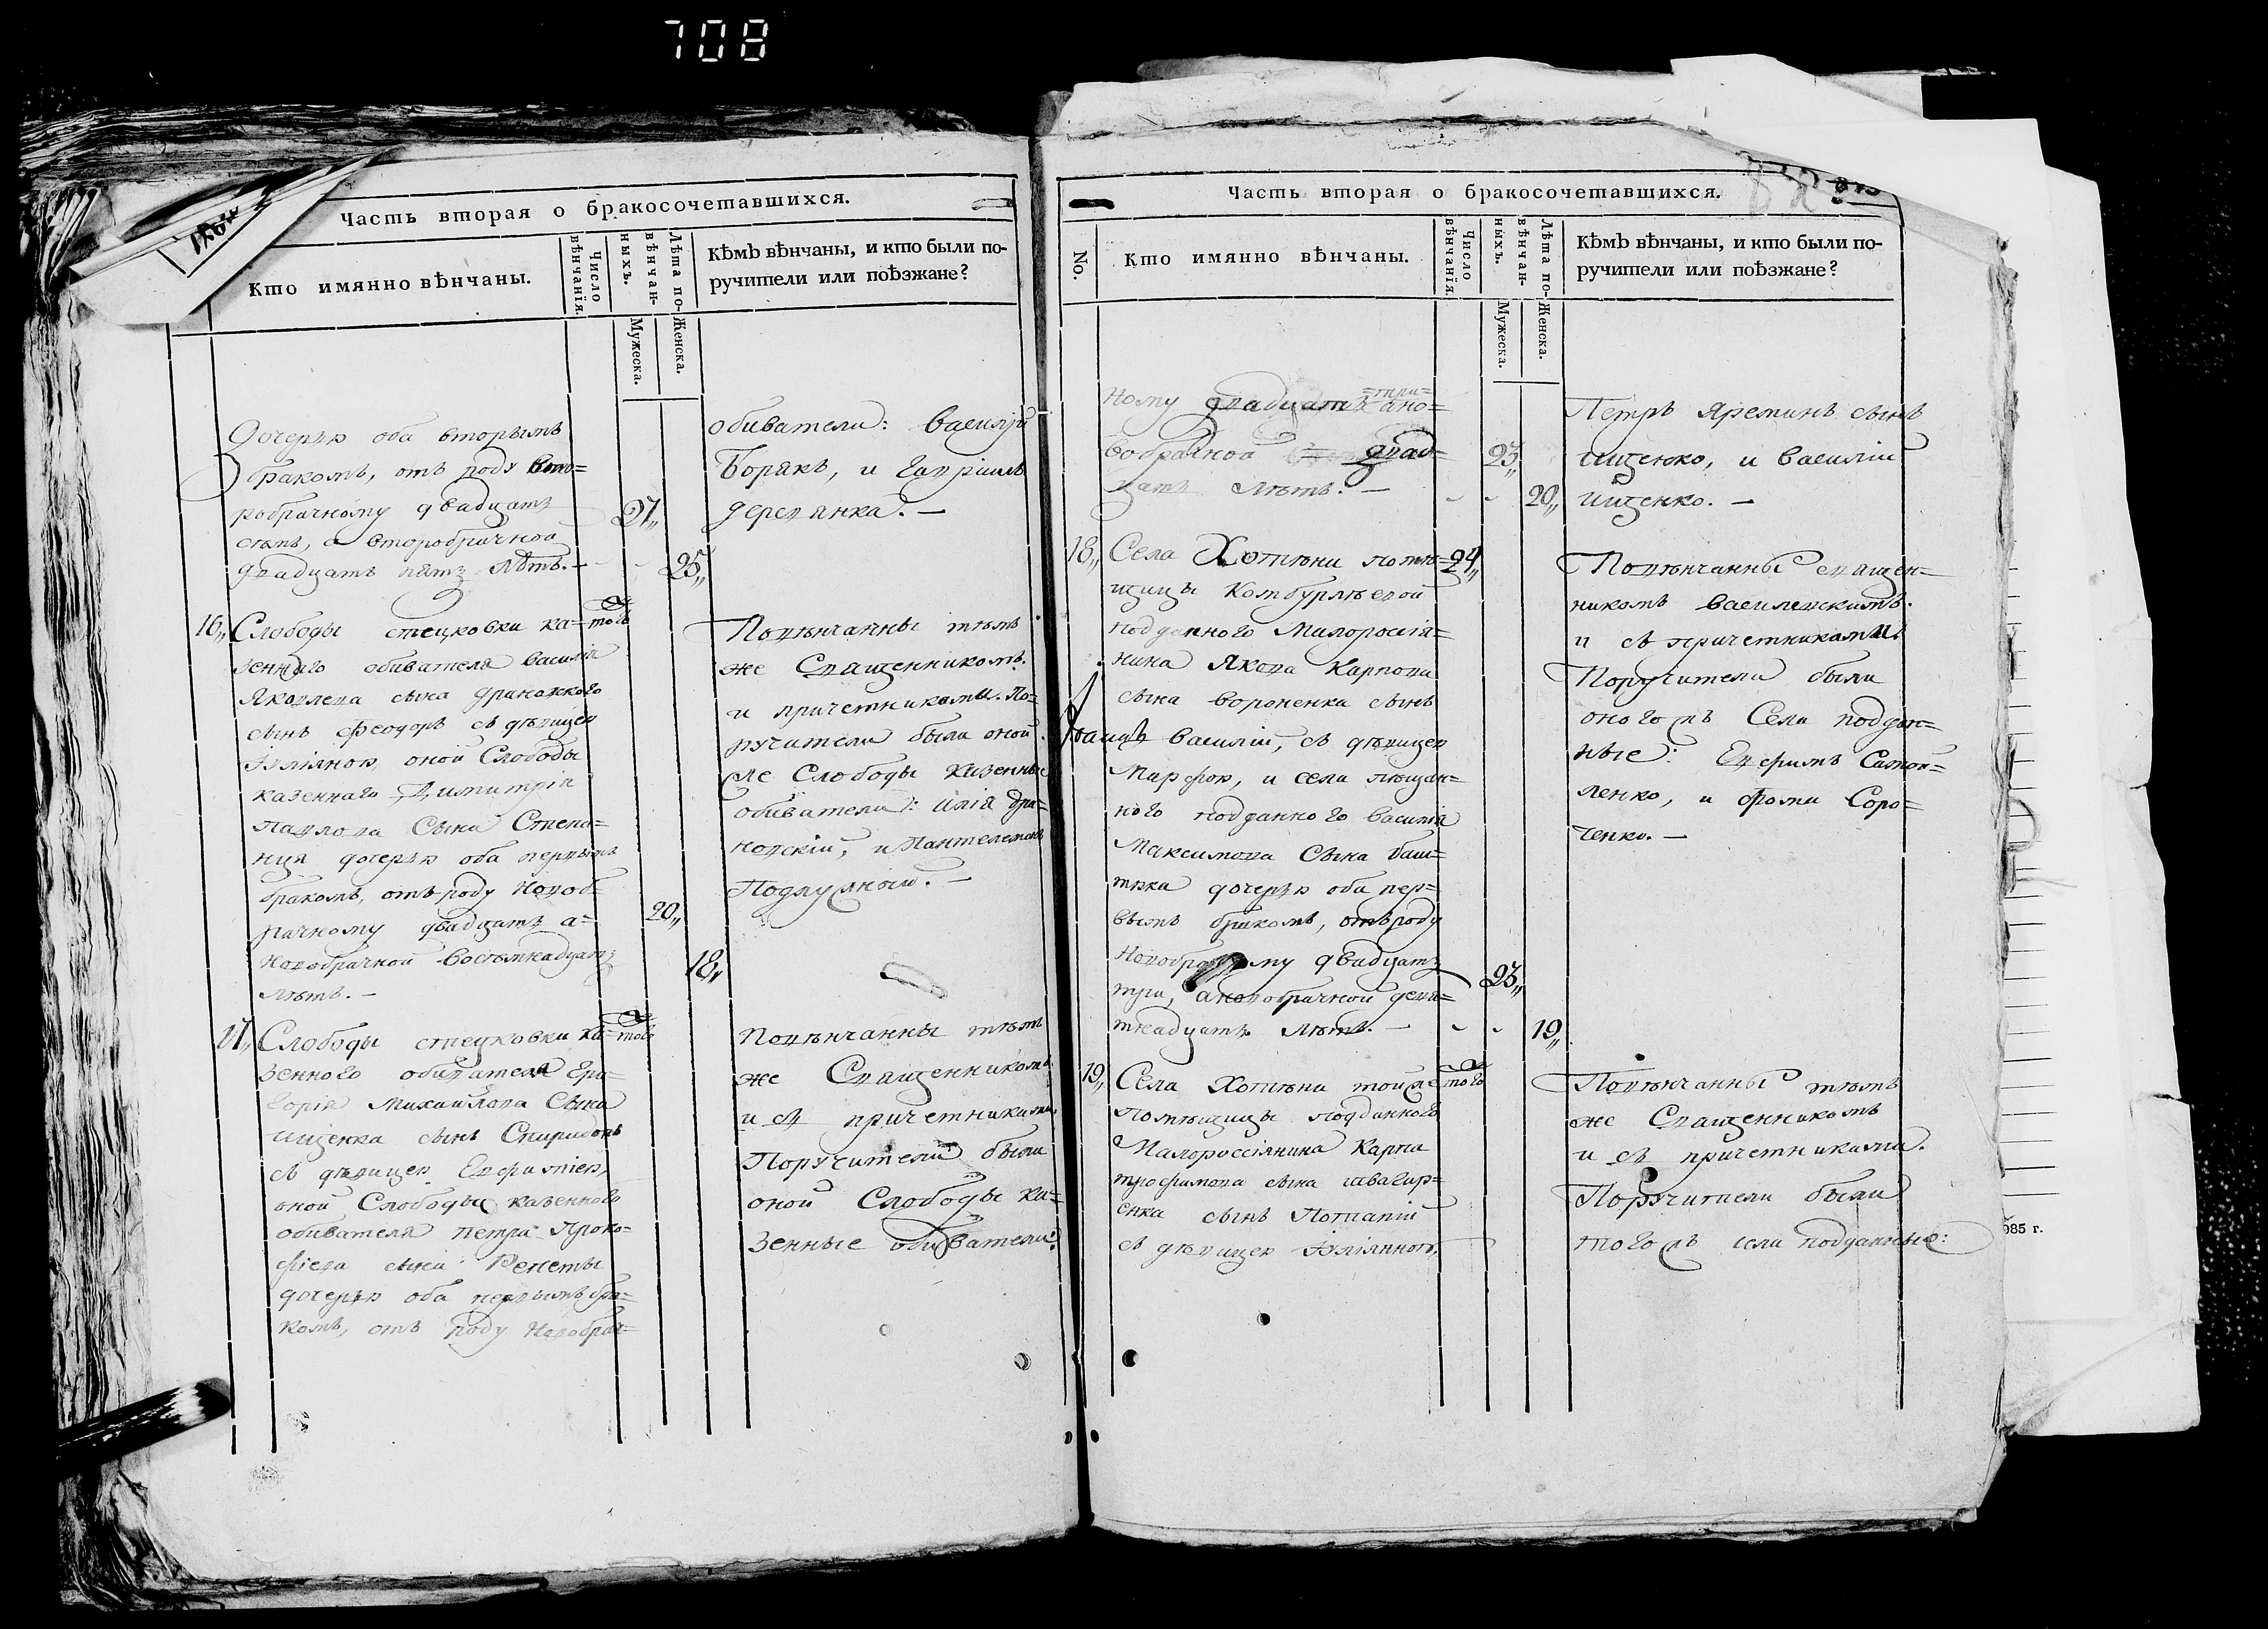 708
Часть вторая о бракосочетавшихся.
Кто имянно вѣнчаны.
Число вѣнчанія.
Лѣта по-
вѣнчан-
ныхъ.
Мужеска.
Женска.
Кѣмъ вѣнчаны, и кто были по-
ручители или поѣзжане?
Дочерью оба вторымъ
бракомъ, отъ роду вто=
робрачному двадцать
семь, а второбрачной
двадцать пять лѣтъ. -
27,,
25,,
обиватели: Василій
Борякъ, и Гавріилъ
Деревянка. -
16,, Слободы стецковки ка=
зеннаго обивателя Василія
Яковлева сына драновского
сынъ Феодоръ съ дѣвицею
Іуліяною оной Слободы
казеннаго Димитрія
Павлова Сына Степа=
нця дочерью оба первымъ
бракомъ, отъ роду новоб=
рачному двадцать а=
новобрачной восемнадцать
лѣтъ. -
того
20,,
18,,
Повѣнчанны тѣмъ
же Священникомъ
и причетниками. По=
ручители были оной
же Слободы казенные
обиватели: Илія дра=
новскій, и Пантелемонъ
17,, Слободы стецковки ка=
зенного обивателя Гри=
горія Михаилова Сына
ищенка сынъ Спиридонъ
съ дѣвицею Евфиміею,
оной Слободы казенного
обивателя петра Проко=
фіева сына Репеты
дочерью оба первымъ бра=
комъ, отъ роду новобрач=
того
Повѣнчанны тѣмъ
же Священникомъ
и съ причетниками.
Поручители были
оной Слободы ка=
зенные обиватели:
Часть вторая о бракосочетавшихся.
No.
Кто имянно вѣнчаны.
Число вѣнчанія.
Лѣта по-
вѣнчан-
ныхъ.
Мужеска.
Женска.
Кѣмъ вѣнчаны, и кто были по-
ручители или поѣзжане?
ному двадцать =три=
ано=
вобрачной двад=
цать лѣтъ. -
23,,
20,,
Петръ Яреминъ сынъ
ищенко, и Василій
ищенко. -
18,, Села Хотѣни помѣ=
щицы Комбурлѣевой
подданного Малоросія=
нина Якова Карпова
сына вороненка сынъ
Василій, съ дѣвицею
Марфою, и села
ного подданного Василія
Максимова Сына баш=
тка дочерью оба пер=
вымъ бракомъ, отъ роду
новобрачному двадцать
три, а новобрачной девя=
тнадцать лѣтъ. -
24,,
23,,
19,,
Повѣнчанны священ=
никомъ Василевскимъ.
и съ причетниками
Поручители были
оного жъ Села поддан=
ные: Евфимъ Самой=
ленко, и Фома Соро=
ченко. -
19,, Села Хотѣни той же
помѣщицы подданного
Малороссіянина Карпа
трофимова сына швагир=
енка сынъ Потапій
съ дѣвицею Іуліянною,
того
Повѣнчанны тѣмъ
же Священникомъ
и съ причетниками.
Поручители были
того жъ села подданные:
985 г.